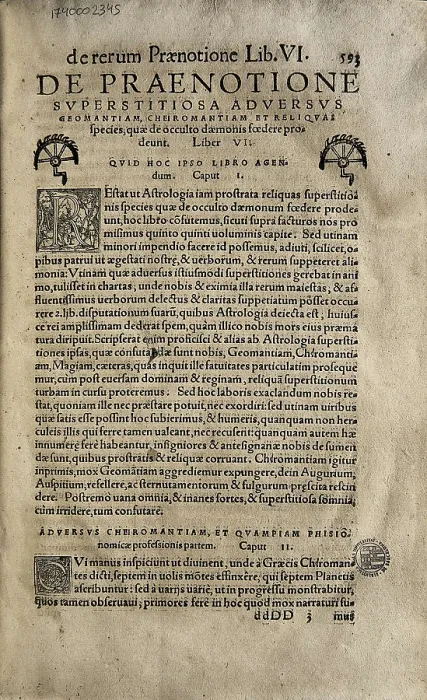 1740002345
de rerum Prænotione Lib. VI. 593
DE PRAENOTIONE
SVPERSTITIOSA ADVERSVS
GEOMANTIAM, CHEIROMANTIAM ET RELIQVAS
species, quæ de occulto dæmonis fœdere pro-
deunt. Liber VI.
QVID HOC IPSO LIBRO AGEN-
dum. Caput I.
REstat ut Astrologia iam prostrata reliquas superstitio-
nis species quæ de occulto dæmonum fœdere prode-
unt, hoc libro cõfutemus, sicuti supra facturos nos pro
misimus quinto quinti uoluminis capite. Sed utinam
minori impendio facere id possemus, adiuti, scilicet, o-
pibus patrui ut ægestati nostrę, & uerborum, & rerum suppeteret ali-
monia: Vtinam quæ aduersus istiusmodi superstitiones gerebat in ani
mo, tulisset in chartas; unde nobis & eximia illa rerum maiestas, & af-
fluentissimus uerborum delectus & claritas suppetiatum pósset occu-
rere 2. lib. disputationum suarũ, quibus Astrologia deiecta est; huius-
ce rei amplissimam dederat spem, quàm illico nobis mors eius præma
tura diripuit. Scripserat enim proficisci & alias ab Astrologia supersti-
tiones ipsas, quæ confutãdæ sunt nobis, Geomantiam, Chíromanti-
am, Magiam, cæteras, quas inquit ille fatuitates particulatim proseque
mur, cùm post euersam dominam & reginam, reliquã superstitionum
turbam in cursu proteremus. Sed hoc laboris exaclandum nobis re-
stat, quoniam ille nec præstare potuit, nec exordiri: sed utinam uiribus
quæ satis esse possint hoc subierimus, & humeris, quanquam non her-
culeis illis qui ferre tamen ualeant, nec recusent: quanquam autem hæ
innumerę ferè habeantur, insigniores & antesignanæ nobis desumen
dæ sunt, quibus prostratis & reliquæ corruant. Chíromantiam igitur
inprimis, mox Geomãtiam aggrediemur expungere, dein Augurium,
Auspitium, refellere, ac sternutamentorum & fulgurum prescita rescin
dere. Postremò uana omnia, & inanes sortes, & superstitiosa somnia,
cùm irridere, tum confutare.
ADVERSVS CHEIROMANTIAM, ET QVAMPIAM PHISIO-
nomicæ professionis partem. Caput II.
QVi manus inspiciunt ut diuinent, unde à Græcis Chíroman-
tes dicti, septem in uolis motes effinxêre, qui septem Planetis
ascribuntur: sed à uarijs uariè, ut in progressu monstrabitur,
quos tamen obseruaui; primores ferè in hoc quod mox narraturi su-
ddDD 3 mus